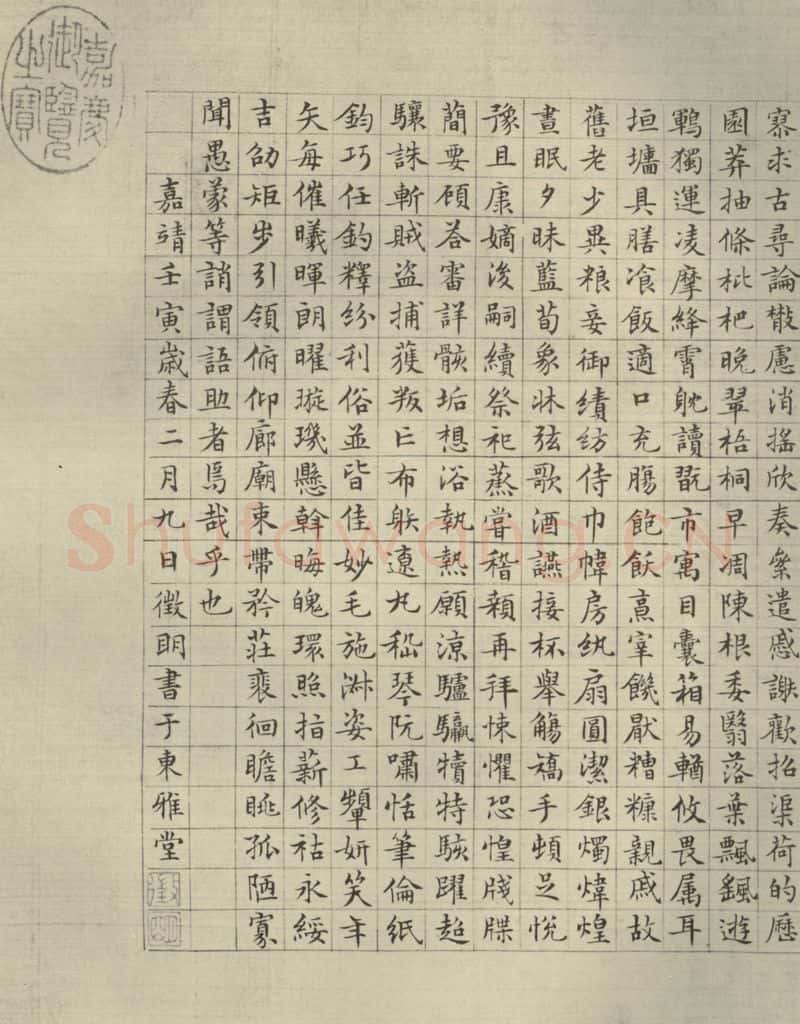 嘉慶御覽之寶
寥求古尋論散慮消搖欣奏絫遣慼謝歡招渠荷的歷
園莽抽條枇杷晚翠梧桐早凋陳根委翳落葉飄颻遊
鵾獨運凌摩絳霄耽讀翫市寓目囊箱易輶攸畏属耳
垣墻具膳飡飯適口充腸飽飫烹宰饑厭糟糠親戚故
舊老少異粮妾御績紡侍巾幃房紈扇圓潔銀燭煒煌
晝眠夕昧藍荀象牀弦歌酒讌接杯舉觴矯手頓足悅
豫且康嫡後嗣續祭祀蒸嘗稽顙再拜悚懼恐惶牋牒
簡要顧荅審詳骸垢想浴執熱願涼驢騾犢特駭躍超
驤誅斬賊盜捕獲叛亡布射遼丸嵇琴阮嘯恬筆倫紙
鈞巧任釣釋紛利俗並皆佳妙毛施淑姿工顰妍笑年
矢每催曦暉朗曜璇璣懸斡晦魄環照指薪修祜永綏
吉劭矩步引領俯仰廊廟束帶矜莊裵徊瞻眺孤陋寡
聞愚蒙等誚謂語助者焉哉乎也
嘉靖壬寅歲春二月九日徵明書于東雅堂
徵
明
Shufawang.CN